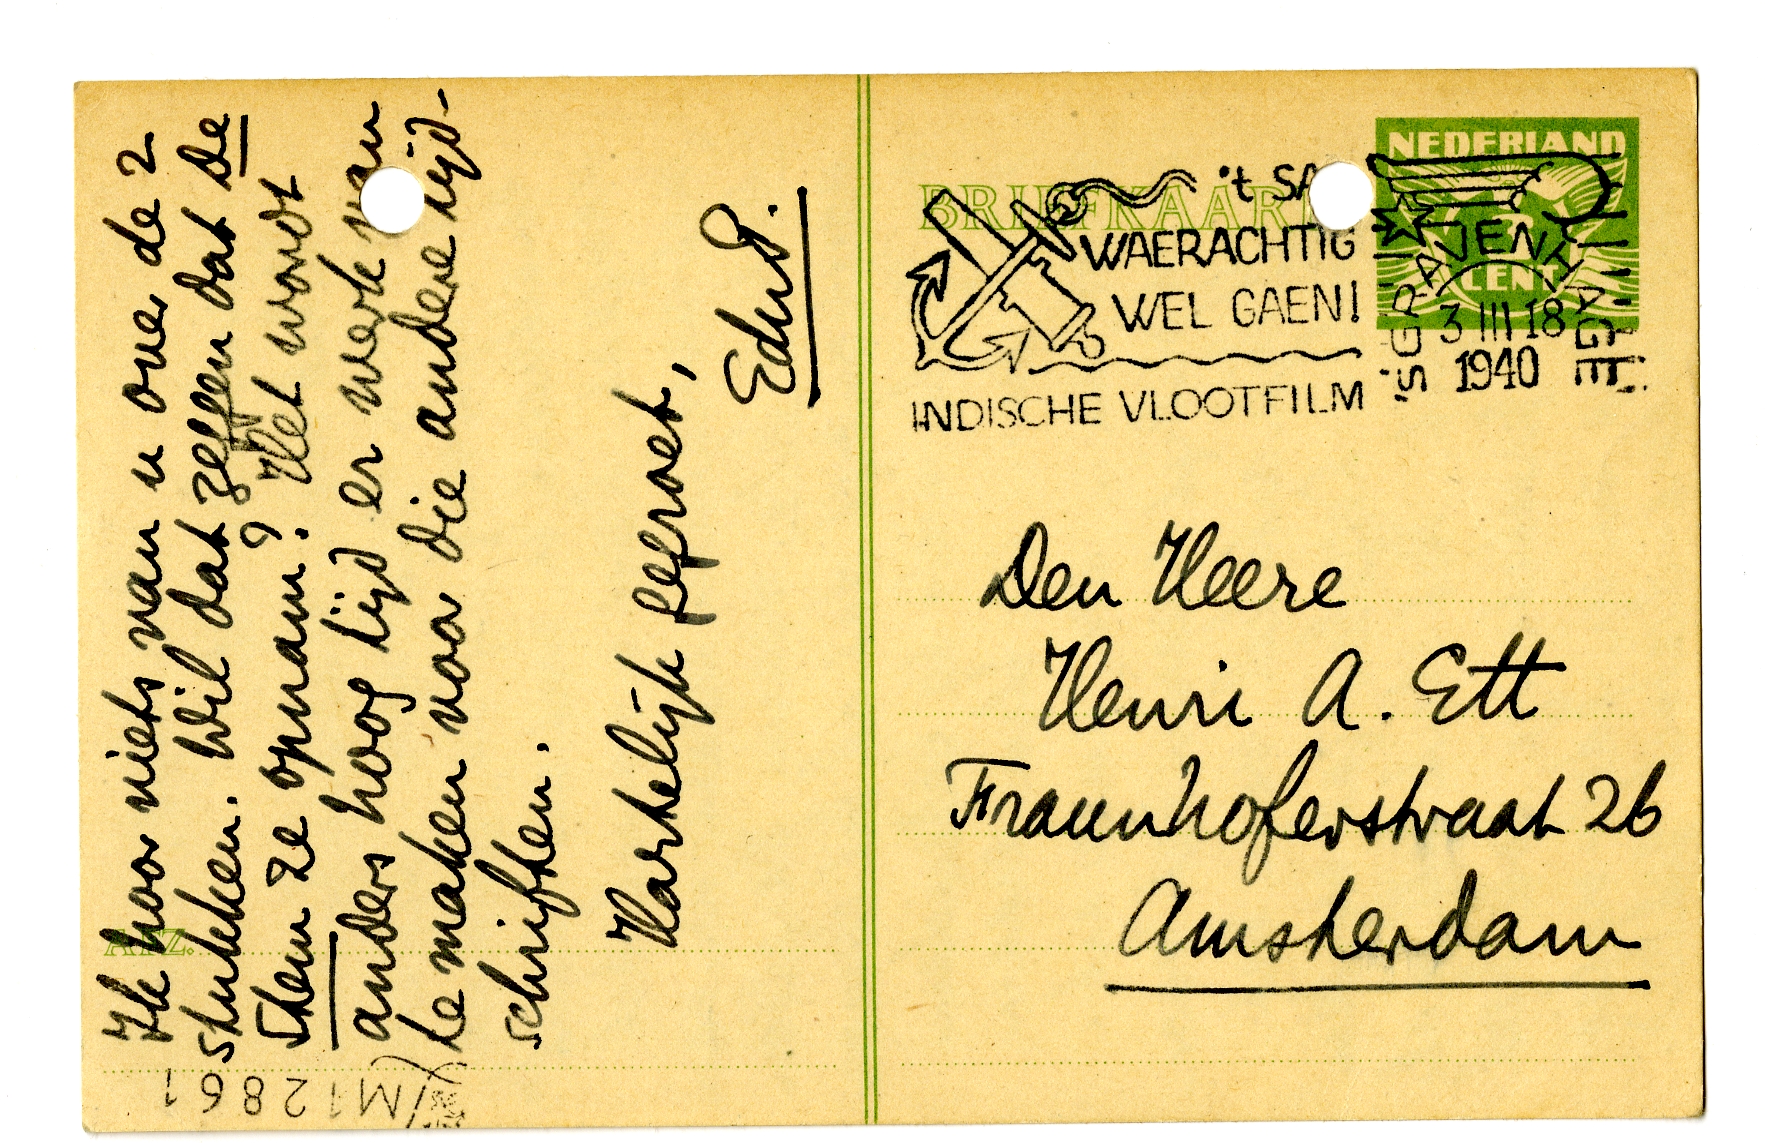 Ik hoor niets van u over de 2
stukken. Wil dat zeggen dat De
Stem ze opnam? Het wordt
anders hoog tijd er werk van
te maken voor die andere tijd-
schriften.
Hartelijk gegroet,
EduP.
AFZ.
M12861
BRIEFKAART
NEDERLAND
3
CENT
't SA
WAERACHTIG
WEL GAEN!
INDISCHE VLOOTFILM
'SGRAVENHAGE
3 III 18
1940
Den Heere
Henri A. Ett
Fraunhoferstraat 26
Amsterdam